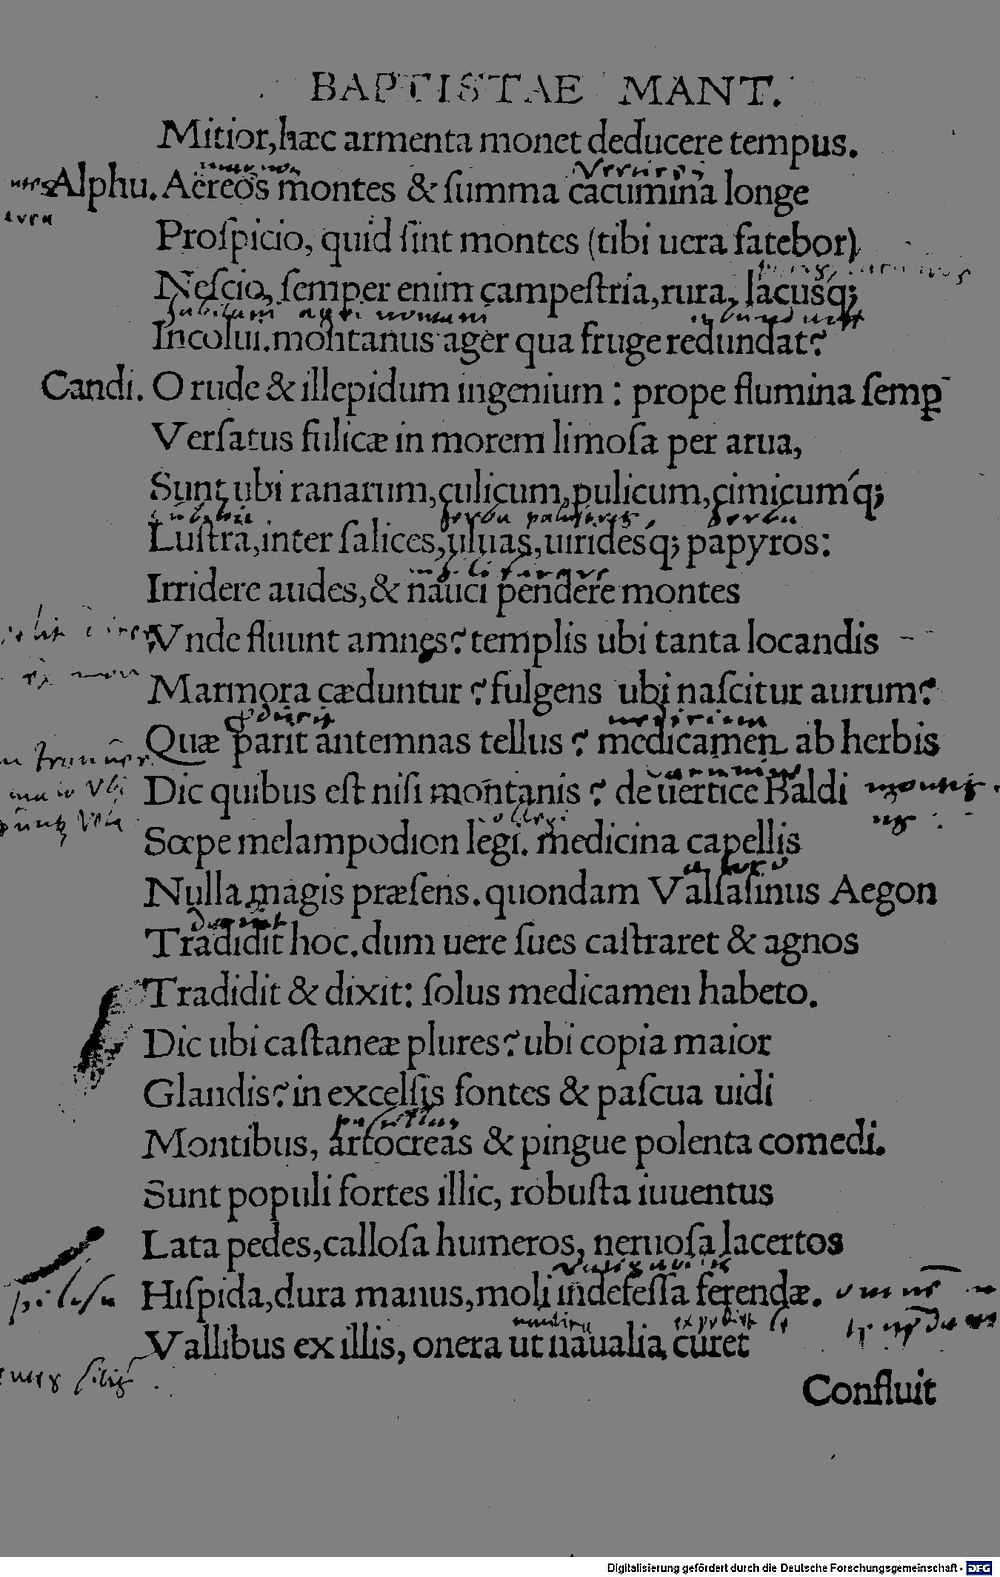 BAPTISTAE MANT.
Mitior, hæc armenta monet deducere tempus.
Alphu. Aëreos montes & ſumma cacumina longe
Proſpicio, quid ſint montes (tibi uera fatebor)
Neſcio, ſemper enim campeſtria, rura, lacusq;
Incolui. montanus ager qua fruge redundat?
Candi. O rude & illepidum ingenium : prope flumina ſemp̱
Verſatus fulicæ in morem limoſa per arua,
Sunt ubi ranarum, culicum, pulicum, cimicum´q;
Luſtra, inter ſalices, uluas, uiridesq; papyros:
Irridere audes, & nauci pendere montes
Vnde fluunt amnes? templis ubi tanta locandis
Marmora cæduntur? fulgens ubi naſcitur aurum?
Quæ parit antemnas tellus? medicamen ab herbis
Dic quibus eſt niſi montanis? de uertice Baldi
Sœpe melampodion legi. medicina capellis
Nulla magis præſens. quondam Valſaſinus Aegon
Tradidit hoc. dum uere ſues caſtraret & agnos
Tradidit & dixit: ſolus medicamen habeto.
Dic ubi caſtaneæ plures? ubi copia maior
Glandis? in excelſis fontes & paſcua uidi
Montibus, artocreas & pingue polenta comedi.
Sunt populi fortes illic, robuſta iuuentus
Lata pedes, calloſa humeros, neruoſa lacertos
Hiſpida, dura manus, moli indefeſſa ferendæ.
Vallibus ex illis, onera ut naualia curet
Confluit
Digitalisierung gefördert durch die Deutsche Forschungsgemeinschaft - DFG